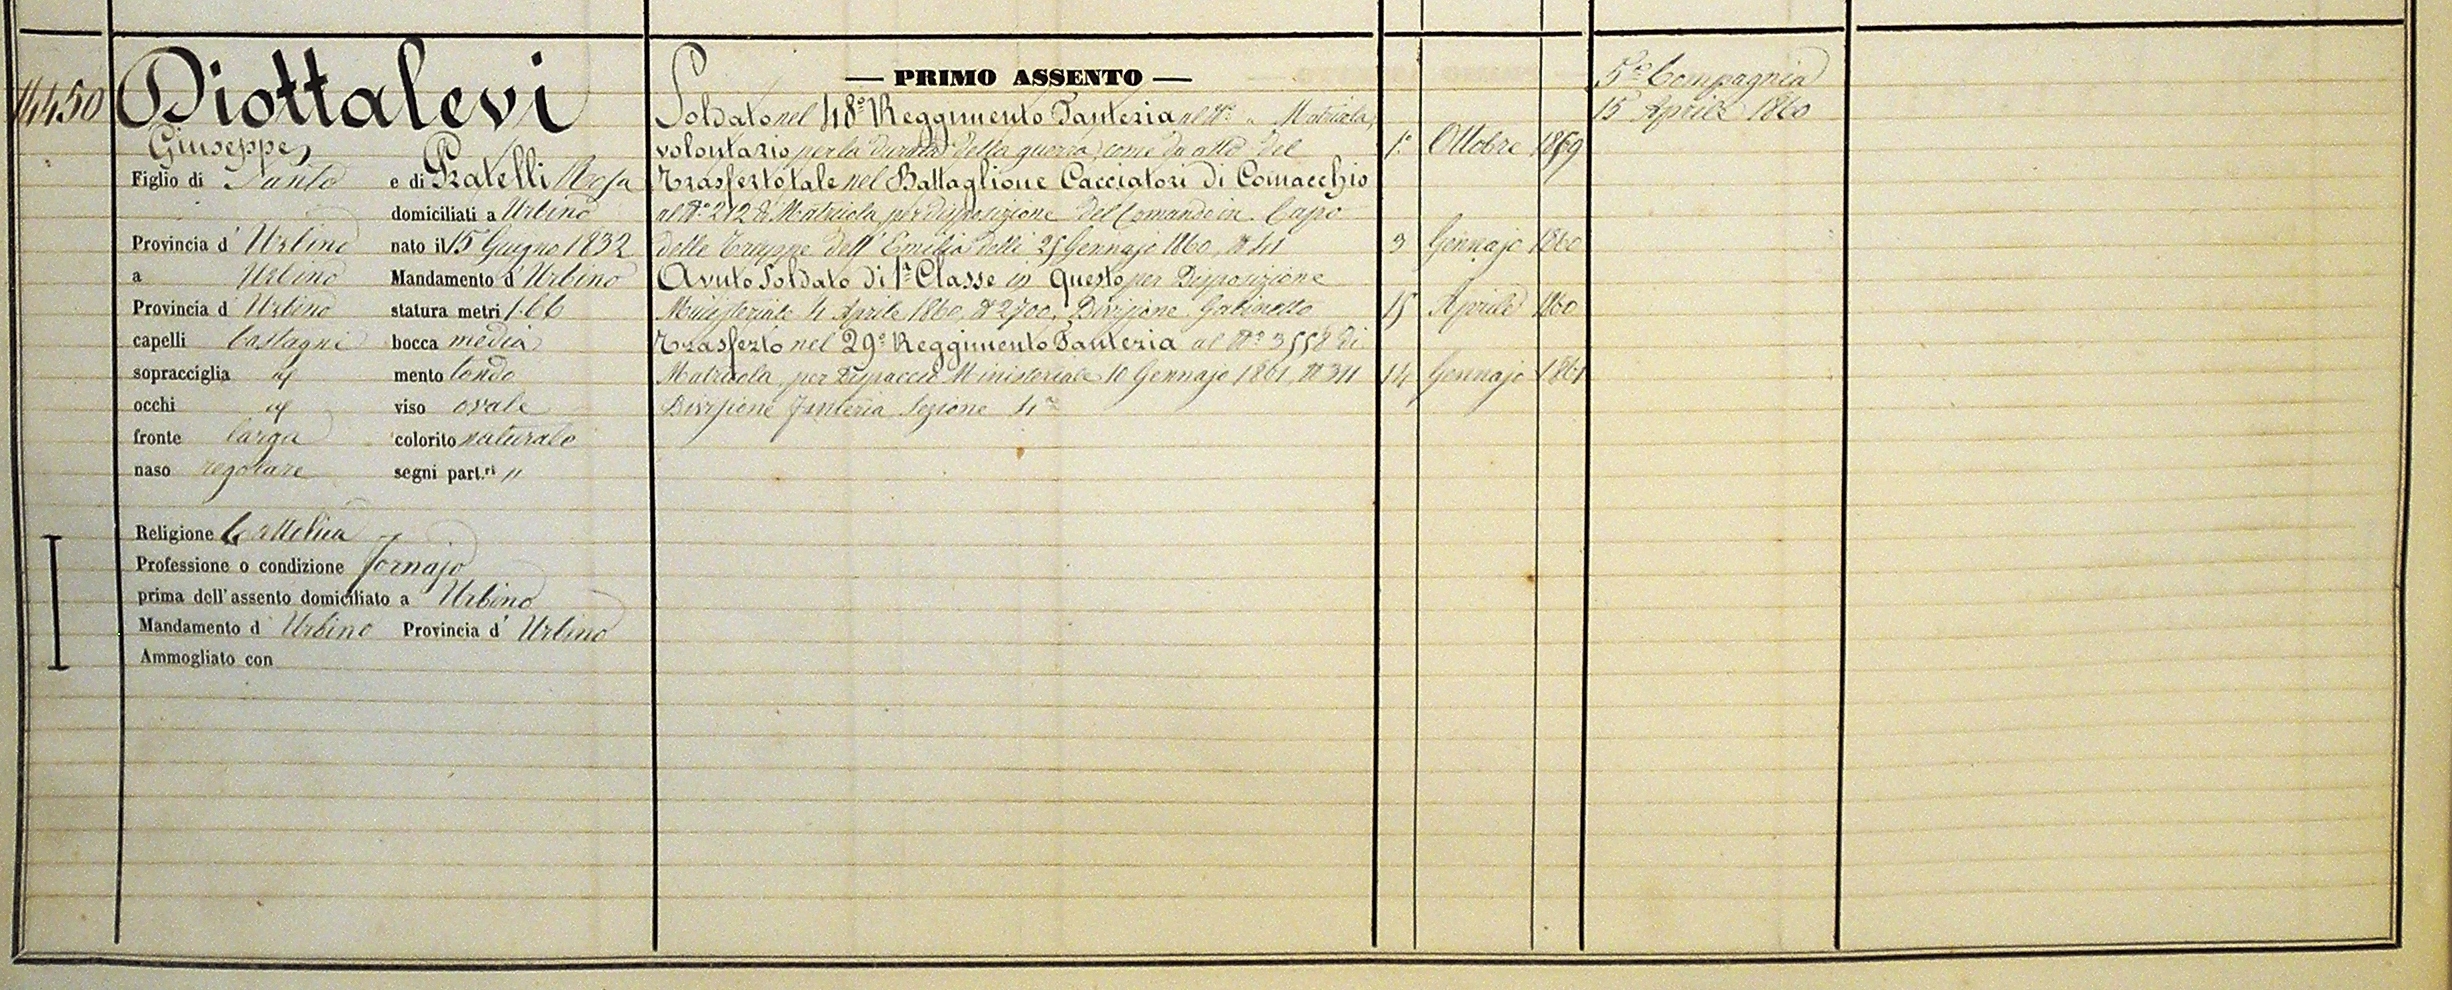 14450
Diottalevi
Giuseppe
Figlio di Santo e di Fratelli Rosa
domiciliati a Urbino
Provincia d' Urbino nato il 15 Giugno 1832
a Urbino Mandamento d' Urbino
Provincia d' Urbino statura metri 1.66
capelli Castagni bocca media
sopracciglia mento tondo
occhi viso ovale
fronte larga colorito naturale
naso regolare segni part.ri "
Religione Cattolica
Professione o condizione Fornajo
prima dell'assento domiciliato a Urbino
Mandamento d Urbino Provincia d' Urbino
Ammogliato con
— PRIMO ASSENTO —
Soldato nel 48º Reggimento Fanteria al Nº " Matricola,
volontario per la durata della guerra, come da atto del 1º Ottobre 1859
Trasferto tale nel Battaglione Cacciatori di Comacchio
al Nº 212 di Matricola per disposizione del Comando in Capo
delle Truppe dell' Emilia delli 25 Gennajo 1860, Nº 41 3 Gennajo 1860
Avuto Soldato di 1ª Classe in questo per Disposizione
Ministeriale 4 Aprile 1860, Nº 2700, Divisione Gabinetto 15 Aprile 1860
Trasferto nel 29º Reggimento Fanteria al Nº 3558 di
Matricola, per Dispaccio Ministeriale 10 Gennajo 1861, Nº 311 14 Gennajo 1861
Divisione Fanteria Sezione 4ª
5ª Compagnia
15 Aprile 1860